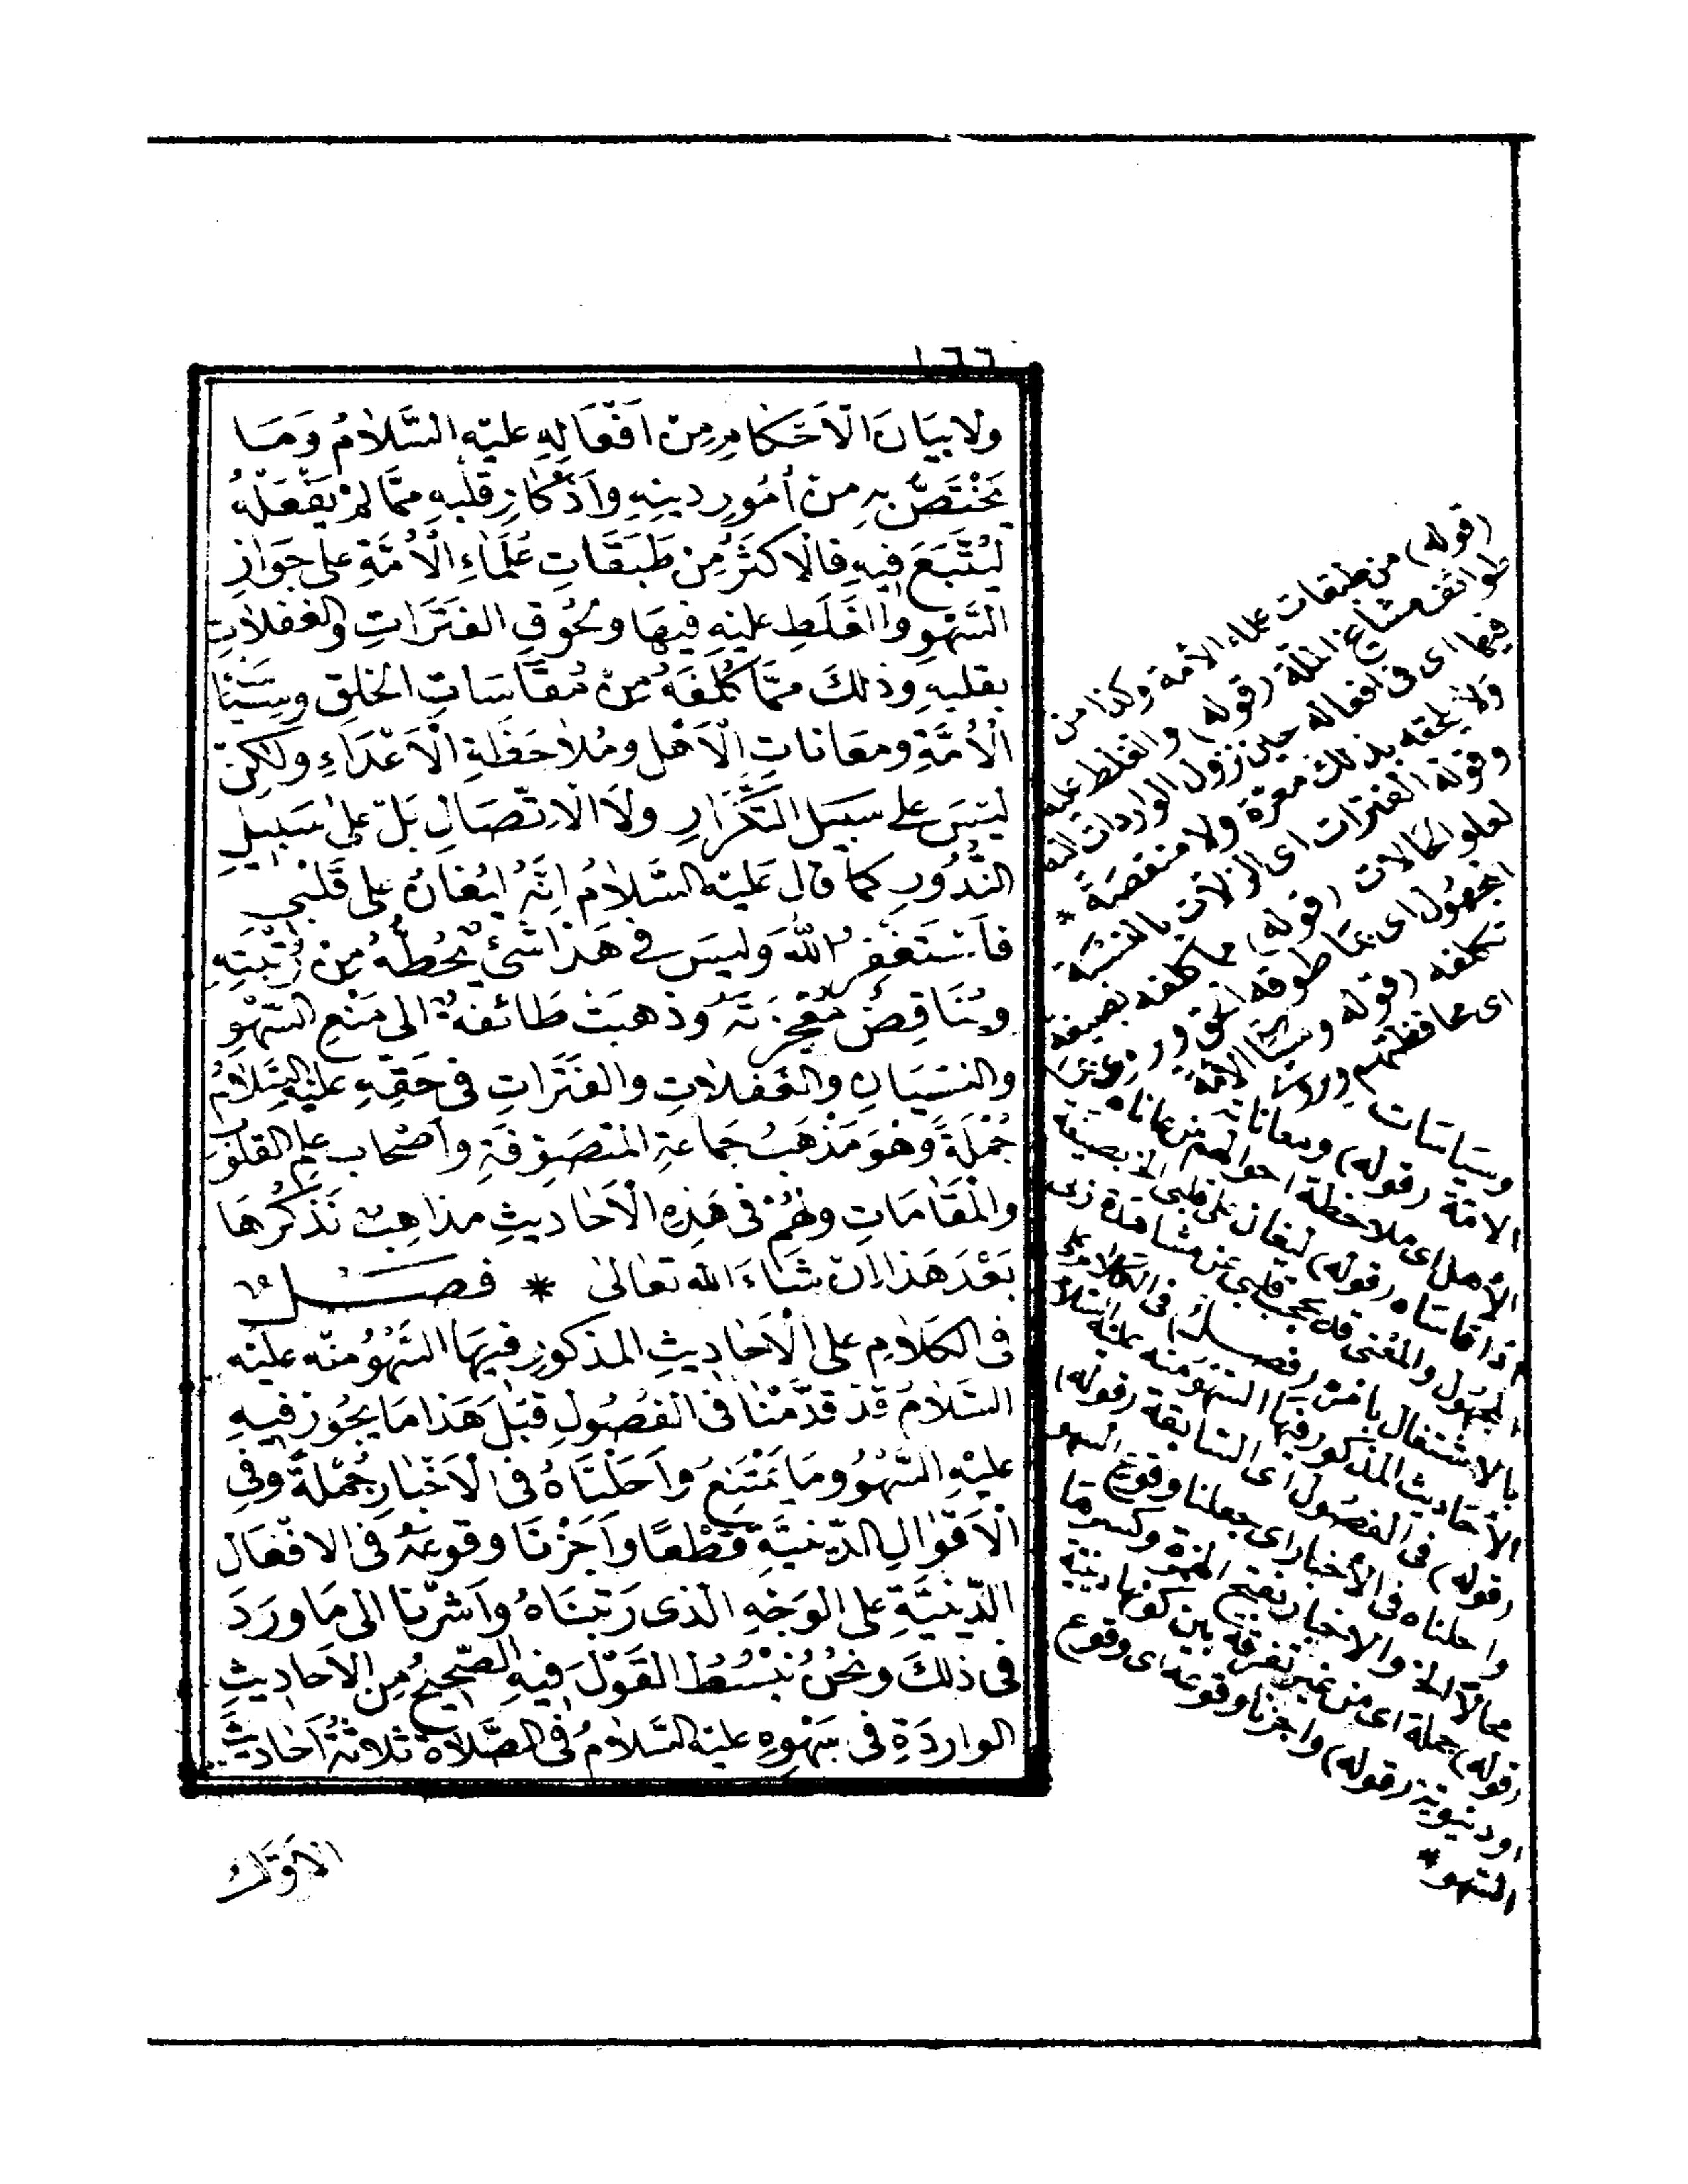 ١٦٦
ولا بَيَانَ الْاَحْكَامِ مِنْ اَفْعَالِهِ عليْهِ السَّلامُ وَمَا
يَخْتَصُّ بِهِ مِنْ اُمُورِ دينِهِ واَذْكَارِ قَلْبِهِ مِمَّا لَمْ يَفْعَلْهُ
لِيُتَّبَعَ فيهِ فالْاكثَرُ مِنْ طَبَقَاتِ عُلَمَاءِ الْاُمَّةِ على جَوَازِ
السَّهْوِ والغَلَطِ عليْهِ فيهَا ولُحُوقِ الفَتَرَاتِ والغفلاتِ
بقلبِهِ وذلكَ مِمَّا كُلِّفَهُ مِنْ مُقَاسَاتِ الخَلقِ وسِيَاسَاتِ
الْاُمَّةِ ومعَاناتِ الْاَهْلِ ومُلاحَظَةِ الْاَعْدَاءِ ولكِنْ
ليْسَ على سَبيلِ التَّكْرَارِ ولَا الْاتِّصَالِ بَلْ على سَبيلِ
النُّدُورِ كما قالَ عَليْهِ السَّلامُ اِنَّهُ ليُغَانُ على قَلْبى
فاَسْتَغْفِرُ اللهَ وَليْسَ فى هَذا شَئٌ يَحُطُّهُ مِنْ رُتْبَتِهِ
ويُنَاقِضُ مُعْجِزَتَهُ وذَهبَتْ طَائفةٌ الى مَنْعِ السَّهْوِ
والنسْيَانِ والغَفلاتِ والفَتَرَاتِ فى حَقِّهِ عليْهِ السَّلامُ
جُمْلَةً وهُوَ مَذْهَبُ جَمَاعةِ المُتصَوّفَةِ واَصْحَابِ عِلمِ القُلُوبِ
والْمَقَامَاتِ ولَهُمْ فى هَذِهِ الْاَحَاديثِ مذاهِبُ نَذْكُرُهَا
بَعْدَ هَذا اِنْ شَاءَ الله تعَالى * فصَــلٌ
فى الكَلامِ على الْاَحَاديثِ المذكورِ فيهَا السَّهْوُ منْه عليْه
السَّلامُ قَدْ قدَّمْنَا فى الفصُولِ قَبْلَ هَذا مَا يجُوز فيهِ
عليْهِ السَّهْوُ ومَا يَمْتَنِعُ واَحَلْنَاهُ فى الْاَخْبَارِ جُمْلةً وفى
الْاَقْوَالِ الدّينيَّةِ قَطْعًا واَجَزْنَا وقوعَهُ فى الافْعَال
الدّينيَّةِ على الوَجْهِ الّذى رَتبْنَاهُ واَشَرْنَا الى مَا ورَدَ
فى ذلكَ ونَحْنُ نَبْسُطُ القَوْلَ فيهِ الصّحيحُ مِن الاَحَاديثِ
الوارِدَةِ فى سَهْوِهِ عليْهِ السَّلامُ فى الصَّلاةِ ثلاثةُ اَحَاديثَ
الاَوَّلُ
(قوله) من طبقات علماء الامة وكذا من
طوائف مشايخ الملة (قوله) والغلط عليه
فيها اى فى افعاله حين نزول الواردات اليه
ولا يلحقه بذلك معرّة ولا منقصة *
وقوله الفترات اى الزلات بالنسبة
لعلو الحالات (قوله) مما كلفه بصيغة
المجهول اى مما طوقه الحق
تكلفه (قوله وسياسات الامة
اى محافظتهم
وسياسات
الامة (قوله) ومعاناة
الاهل اى ملاحظة احوالهم من عاناه
اذا قاساه (قوله) ليغان على قلبى الخ بصيغة
المجهول والمعنى قد يحجب قلبى عن مشاهدة ربى
بالاشتغال بامره (فصــل) فى الكلام على
الاحاديث المذكور فيها السهو منه عليه السلام
(قوله) فى الفصول اى السابقة (قوله)
واحلناه فى الاخبار اى جعلنا وقوع السهو
محالا الخ والاخبار بفتح الهمزة وكسرها
(قوله) جملة اى من غير تفرقة بين كونها دينية
او دنيوية (قوله) واجزنا وقوعه اى وقوع
السهو *